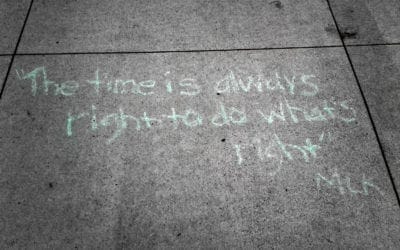 "The time is always
right to do what's
right"
MLK